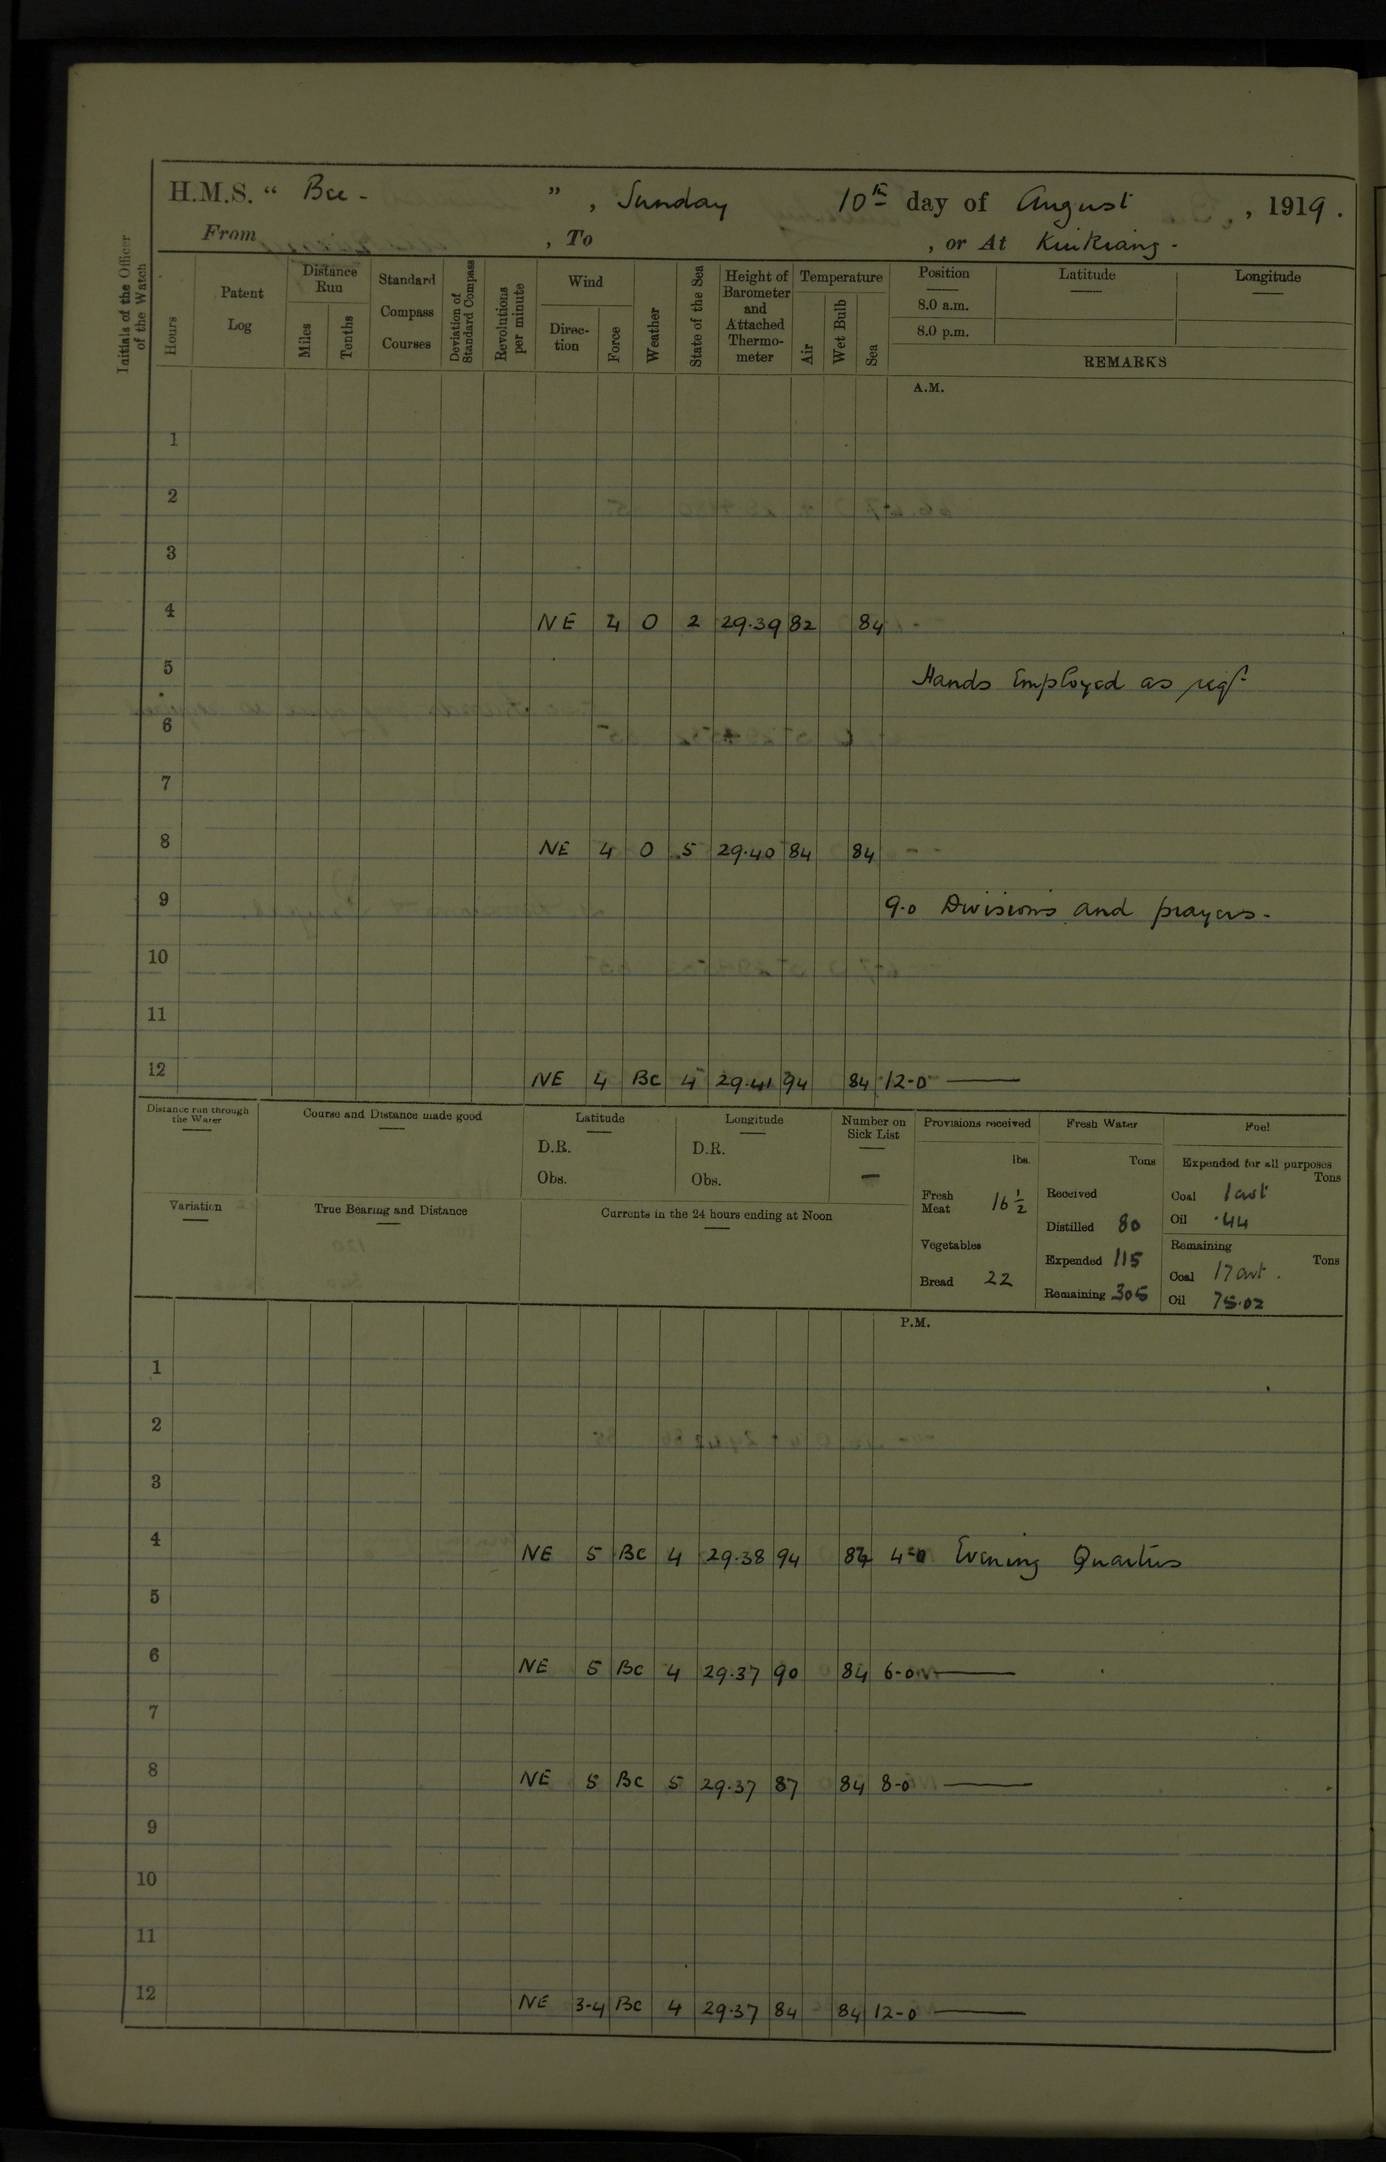 H.M.S. “ Bee - ” , Sunday 10th day of August , 1919 .
From , To , or At Kiukiang -
Initials of the Officer of the Watch
Hours
Patent Log
Distance Run
Miles
Tenths
Standard Compass Courses
Deviation of Standard Compass
Revolutions per minute
Wind
Direc-tion
Force
Weather
State of the Sea
Height of Barometer and Attached Thermo-meter
Temperature
Air
Wet Bulb
Sea
Position Latitude Longitude
8.0 a.m.
8.0 p.m.
REMARKS
A.M.
1
2
3
4 NE 4 O 2 29.39 82 84
5 Hands Employed as reqd.
6
7
8 NE 4 O 5 29.40 84 84
9 9.0 Divisions and prayers -
10
11
12 NE 4 BC 4 29.41 94 84 12-0
Distance run through the Water
Course and Distance made good
Latitude
D.R.
Obs.
Longitude
D.R.
Obs.
Number on Sick List
—
Provisions received
lbs.
Fresh Meat 16 1/2
Vegetables
Bread 22
Fresh Water
Tons
Received
Distilled 80
Expended 115
Remaining 305
Fuel
Expended for all purposes
Tons
Coal 1 cwt
Oil .44
Remaining
Tons
Coal 17 cwt .
Oil 75.02
Variation
True Bearing and Distance
Currents in the 24 hours ending at Noon
P.M.
1
2
3
4 NE 5 BC 4 29.38 94 84 4-0 Evening Quarters
5
6 NE 5 BC 4 29.37 90 84 6-0
7
8 NE 5 BC 5 29.37 87 84 8-0
9
10
11
12 NE 3-4 BC 4 29.37 84 84 12-0